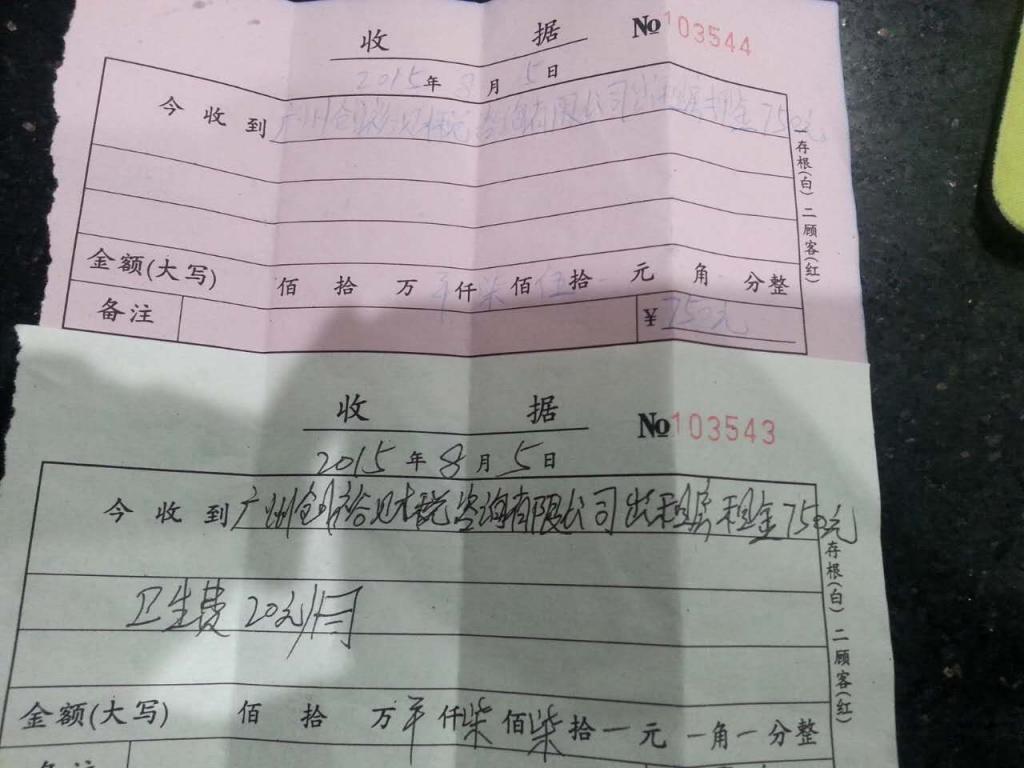 收 据 No 103544
2015年8月5日
今收到广州创裕财税咨询有限公司出租房租金750元
金额(大写) 佰 拾 万 仟柒佰伍拾 元 角 分整
备注 ¥750元
一存根(白) 二顾客(红)
收 据 No 103543
2015年8月5日
今收到广州创裕财税咨询有限公司出租房租金750元
卫生费20元/月
金额(大写) 佰 拾 万 仟柒佰柒拾一元一角一分整
备注
存根(白) 二顾客(红)